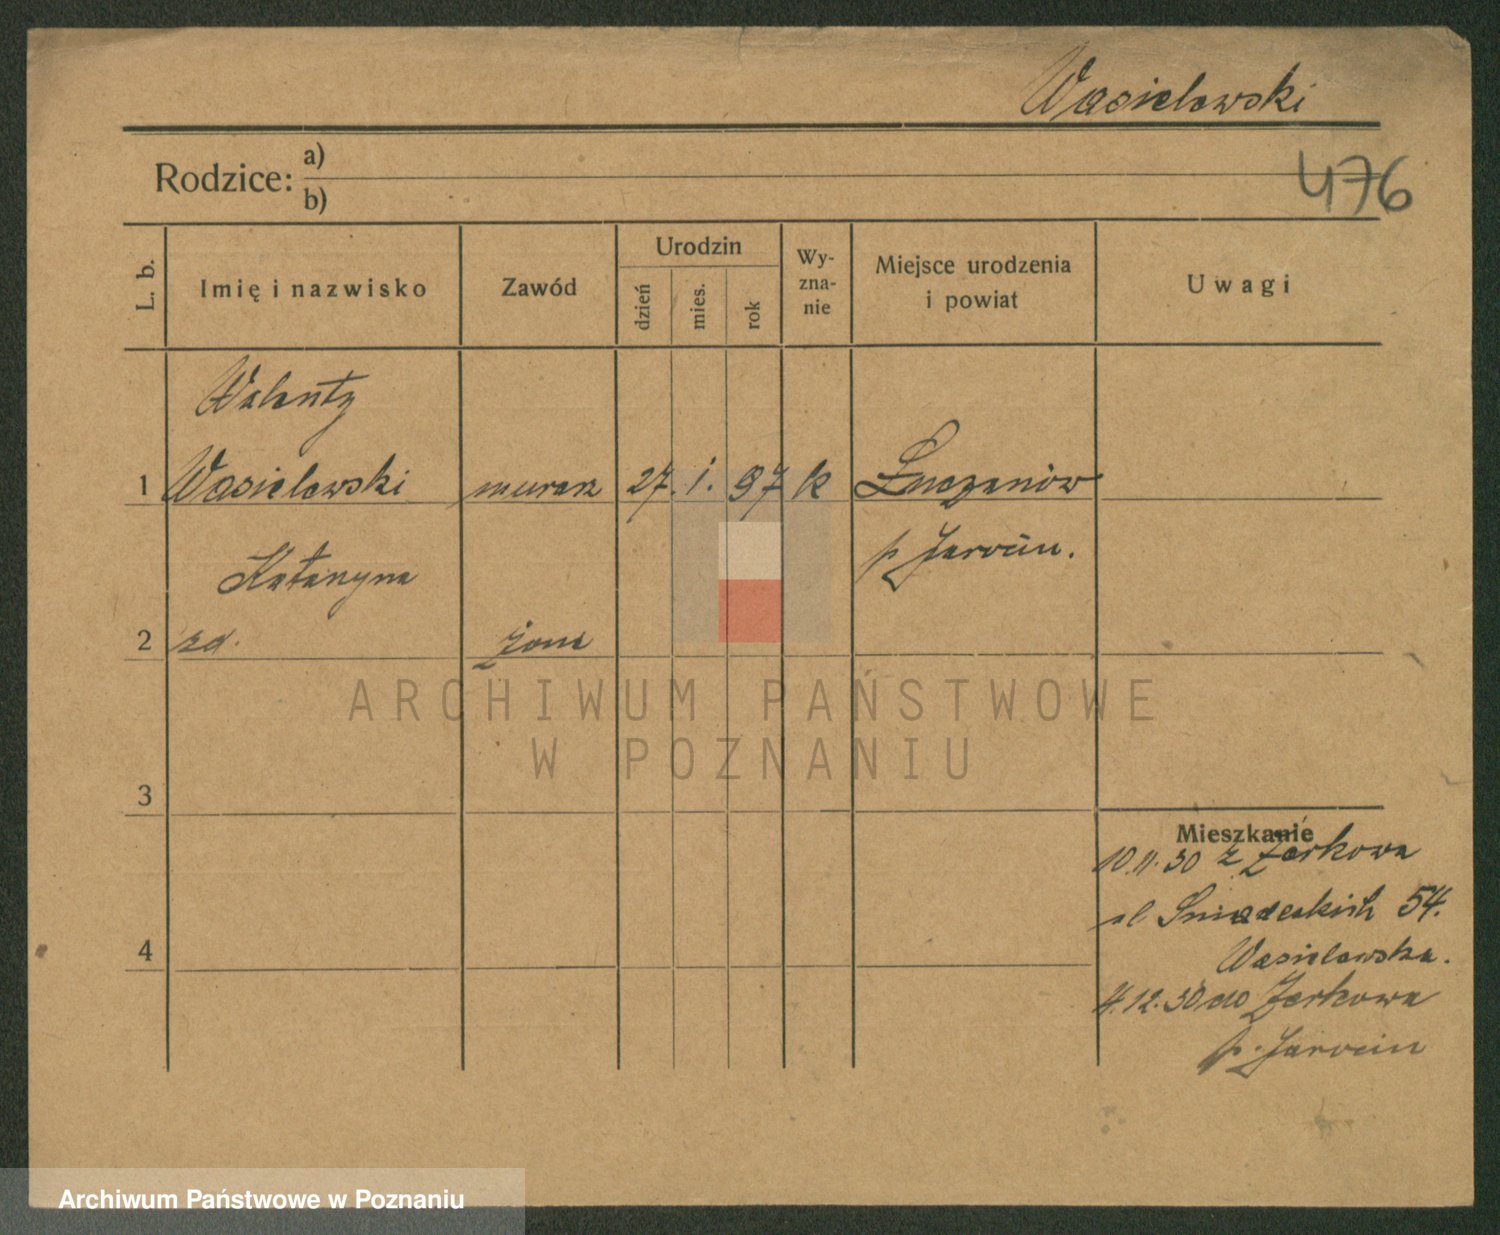 Wasielewski
476
Rodzice: a)
b)
L. b.
Imię i nazwisko
Zawód
Urodzin
dzień
mies.
rok
Wy-
zna-
nie
Miejsce urodzenia
i powiat
Uwagi
Walenty
1 Wasielewski murarz 27. i. 97 k Łuczanów
p Jarocin.
Katarzyna
2 zd. żona
3
4
Mieszkanie
10.11.30 z Żerkowa
ul Śniadeckich 54.
Wasielewska.
4.12.30 do Żerkowa
p. Jarocin
ARCHIWUM PAŃSTWOWE
W POZNANIU
Archiwum Państwowe w Poznaniu